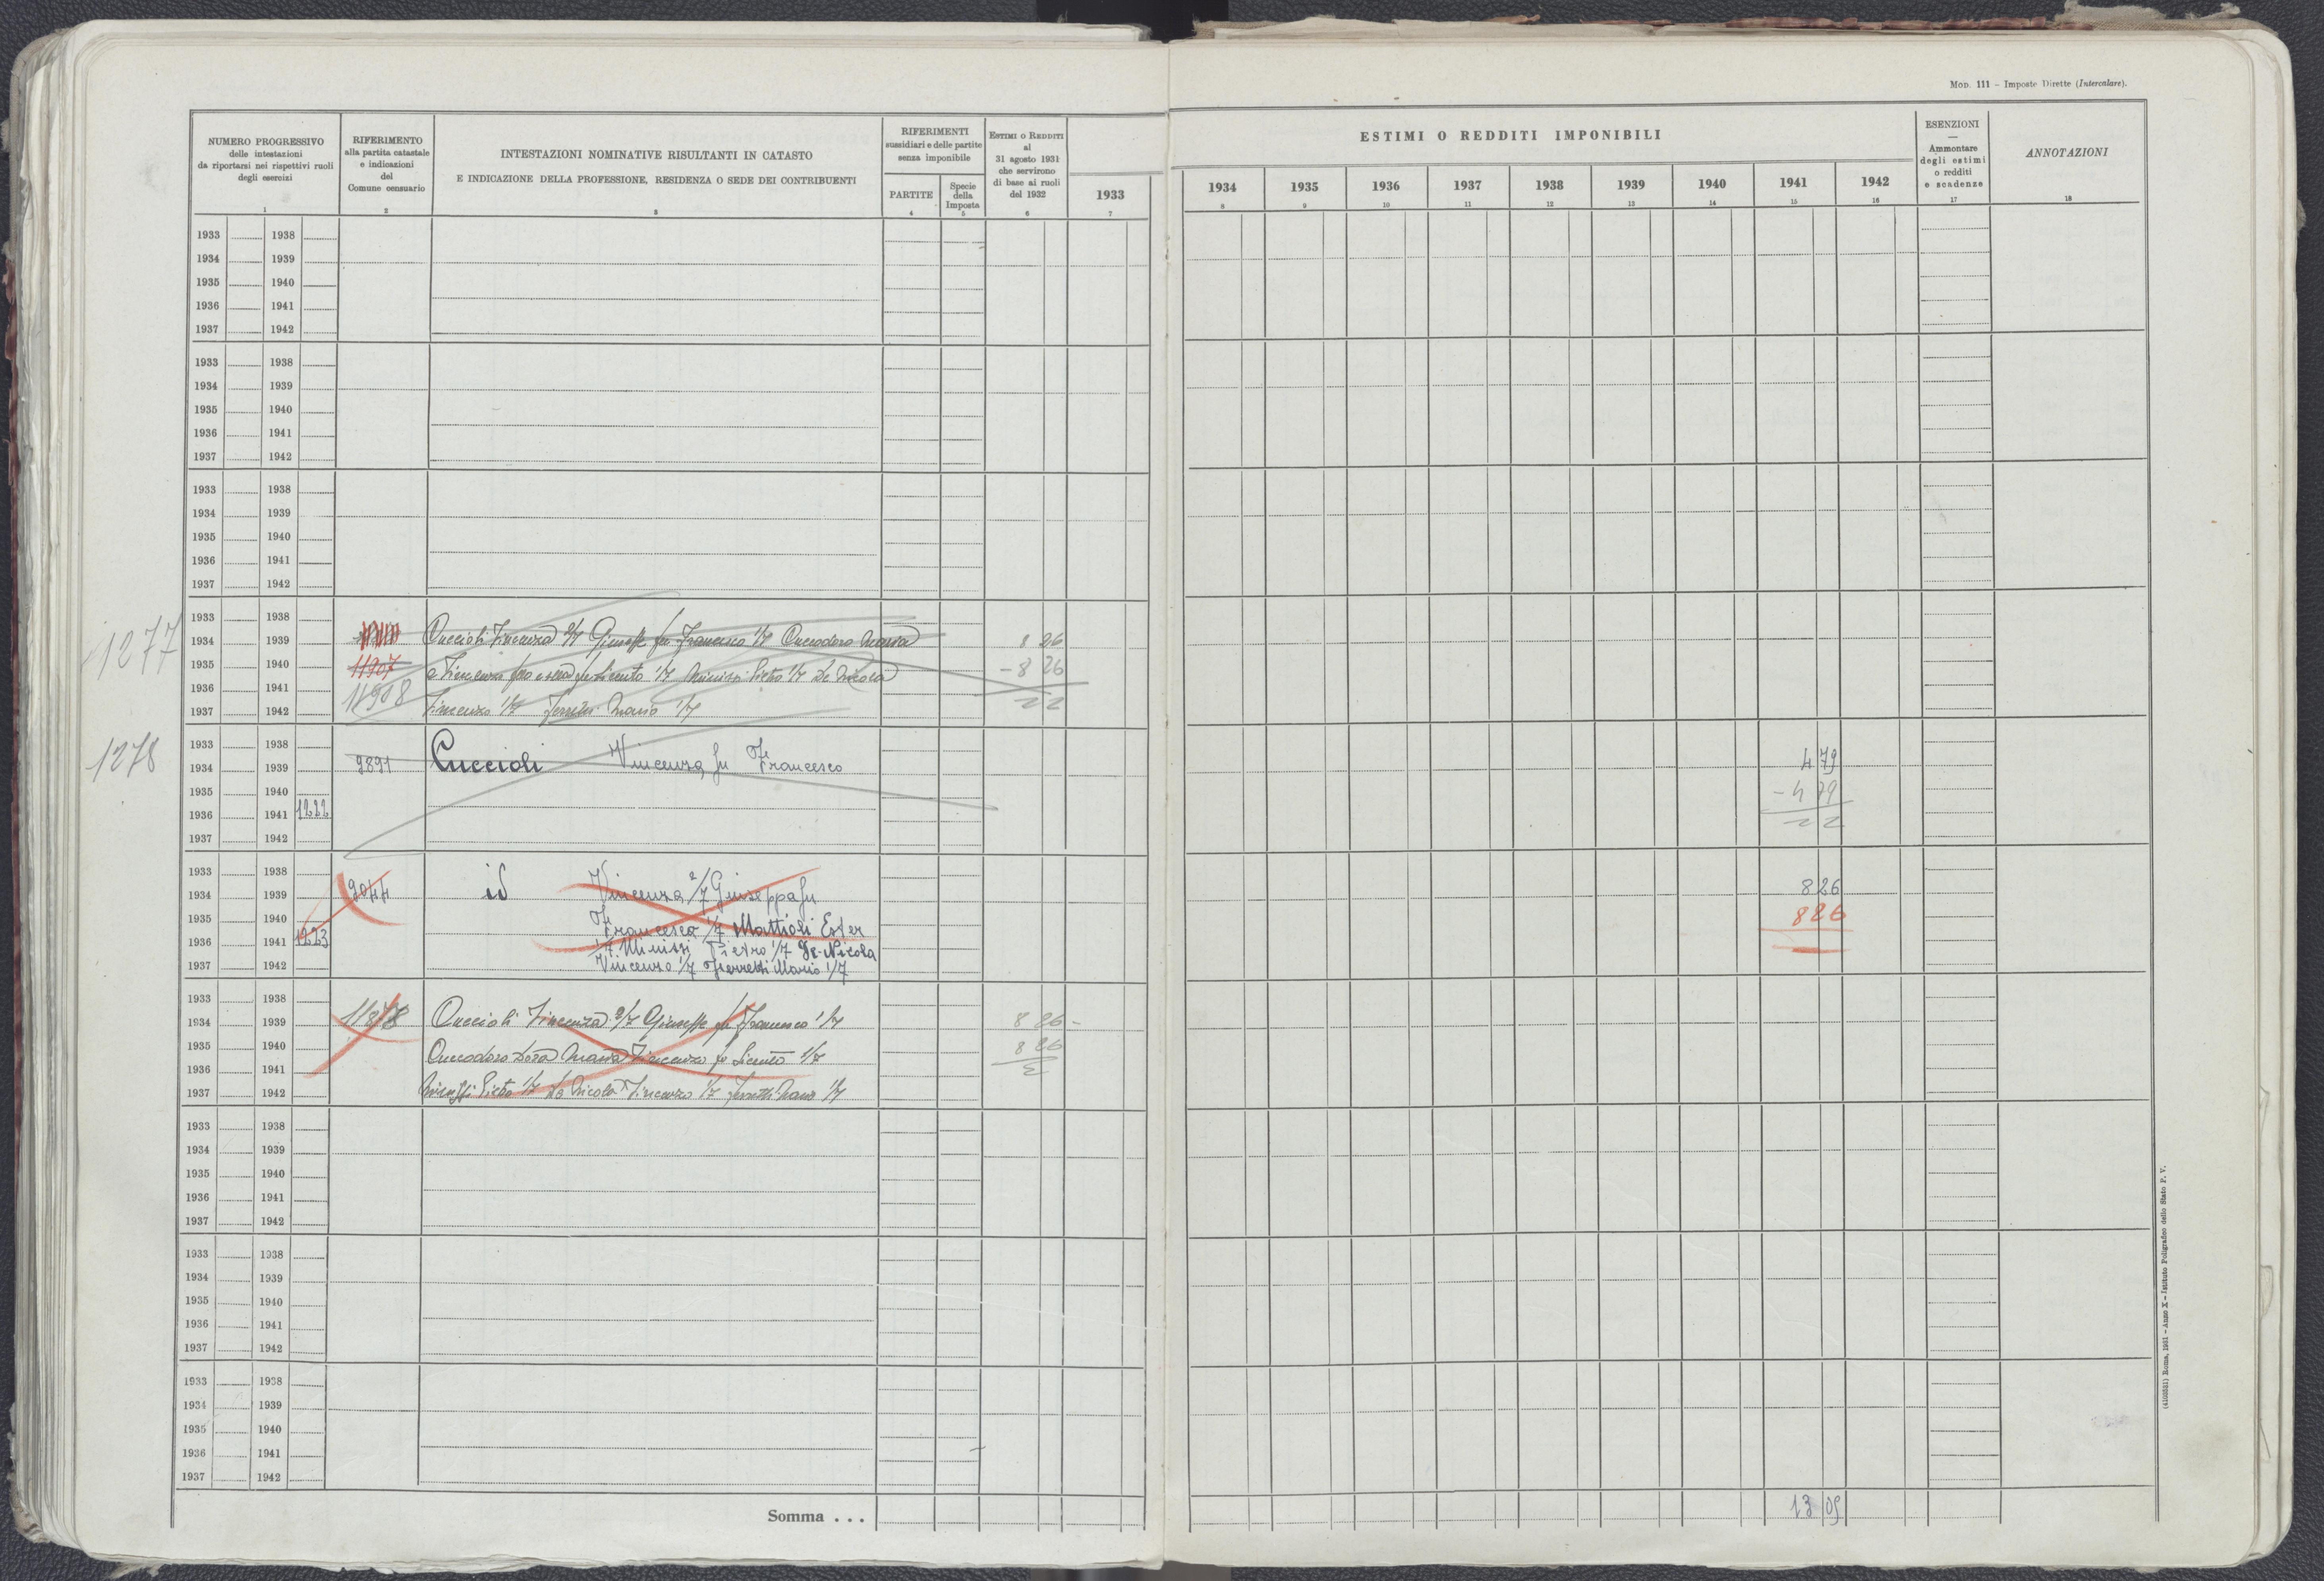 Mod. 111 – Imposte Dirette (Intercalare).
NUMERO PROGRESSIVO
delle intestazioni
da riportarsi nei rispettivi ruoli
degli esercizi
1
RIFERIMENTO
alla partita catastale
e indicazioni
del
Comune censuario
2
INTESTAZIONI NOMINATIVE RISULTANTI IN CATASTO
E INDICAZIONE DELLA PROFESSIONE, RESIDENZA O SEDE DEI CONTRIBUENTI
3
RIFERIMENTI
sussidiari e delle partite
senza imponibile
PARTITE
4
Specie
della
Imposta
5
ESTIMI O REDDITI
al
31 agosto 1931
che servirono
di base ai ruoli
del 1932
6
1933
7
ESTIMI O REDDITI IMPONIBILI
1934 1935 1936 1937 1938 1939 1940 1941 1942
8 9 10 11 12 13 14 15 16
ESENZIONI
—
Ammontare
degli estimi
o redditi
e scadenze
17
ANNOTAZIONI
18
1933 1938
1934 1939
1935 1940
1936 1941
1937 1942
1933 1938
1934 1939
1935 1940
1936 1941
1937 1942
1933 1938
1934 1939
1935 1940
1936 1941
1937 1942
1277
1933 1938
1934 1939 Cuccioli Vincenza 2/7 Giuseppe fu Francesco 1/7 8 26
1935 1940 11907 e Vincenzo 1/7 Minissi Pietro 1/7 De Nicola - 8 26
1936 1941 11908
1937 1942 Vincenzo 1/7 Ferretti Mario 1/7
1278
1933 1938
1934 1939 9891 Cuccioli Vincenza fu Francesco 4 79
1935 1940 - 4 79
1936 1941 1222
1937 1942
1933 1938
1934 1939 9044 id Vincenza 2/7 Giuseppa fu 8 26
1935 1940 Francesco 1/7 Mattioli Ester 8 26
1936 1941 1223 1/7 Minissi Pietro 1/7 De Nicola
1937 1942 Vincenzo 1/7 Ferretti Mario 1/7
1933 1938
1934 1939 11878 Cuccioli Vincenza 2/7 Giuseppe fu Francesco 1/7 8 26 -
1935 1940 Maria Vincenzo fu 1/7 8 26
1936 1941
1937 1942 Pietro 1/7 De Nicola Vincenzo 1/7 Ferretti Mario 1/7
1933 1938
1934 1939
1935 1940
1936 1941
1937 1942
1933 1938
1934 1939
1935 1940
1936 1941
1937 1942
1933 1938
1934 1939
1935 1940
1936 1941
1937 1942
Somma . . . 13 05
(4108581) Roma, 1931 – Anno X – Istituto Poligrafico dello Stato P. V.